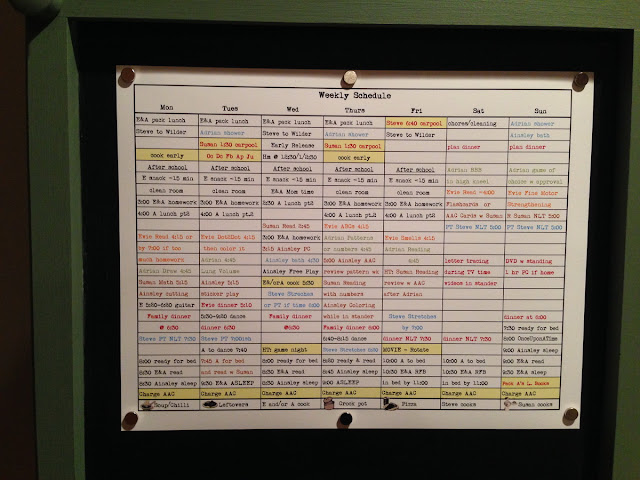 Weekly Schedule
Mon Tues Wed Thurs Fri Sat Sun
E&A pack lunch E&A pack lunch E&A pack lunch E&A pack lunch Steve 6:40 carpool chores/cleaning Adrian shower
Steve to Wilder Adrian shower Steve to Wilder Adrian shower Steve to Wilder Ainsley bath
Susan 1:30 carpool Early Release Susan 1:30 carpool plan dinner plan dinner
cook early Oc De Fb Ap Ju Hm @ cook early
After school After school After school After school After school Adrian Adrian game of
E snack ~15 min E snack ~15 min E snack ~15 min E snack ~15 min E snack ~15 min in high kneel choice w approval
clean room clean room E&A Mom time clean room clean room Evie Read Evie Fine Motor
3:00 E&A homework 3:00 E&A homework 2:30 E&A homework 3:00 E&A homework Flashcards or Strengthening
4:00 A lunch pt2 4:00 A lunch pt2 4:00 A lunch pt2 4:00 A lunch pt2 AAC Cards w Susan H Susan NLT 5:00
Susan Read 2:45 Evie ABCs 4:15 PT Steve NLT 5:00 PT Steve NLT 5:00
Evie Read 4:15 or Evie Dot2Dot 4:15 3:00 E&A homework Adrian Patterns Evie Smells 4:15
by 7:00 if too then color it 3:15 Ainsley PC or Adrian Reading Adrian Reading
much homework Adrian 4:45 Ainsley bath 4:30 5:00 Ainsley AAC 4:45 letter tracing DVD w standing
Adrian Draw 4:45 Lung Volume Ainsley Free Play review pattern w/ Susan Reading during TV time 1 hr PC if home
Susan Math 5:15 Ainsley 5:15 E&/orA cook 5:30 Susan Reading review w AAC videos in stander
Ainsley cutting sticker play Steve Stretches with numbers after Adrian
E 5:50-6:20 guitar Evie dinner 5:10 or PT if time 6:00 Ainsley Coloring
Family dinner 5:30-6:30 dance Family dinner while in stander Steve Stretches dinner at 6:00
@ 6:30 dinner 6:30 @6:30 Family dinner 6:00 by 7:00 7:30 ready for bed
Steve PT NLT 7:30 Steve PT 7:00ish 6:40-8:15 dance dinner NLT 7:30 dinner NLT 7:30 8:00 OnceUponATime
A to dance 7:40 HH game night Steve Stretches MOVIE - Rotate 9:00 Ainsley sleep
8:00 ready for bed 7:45 A for bed 8:00 ready for bed 8:20 ready & read 10:00 A to bed 10:00 A to bed 9:00 E&A read
8:30 E&A read and read w Susan 8:30 E&A read 8:45 Ainsley sleep 10:30 E&A RFB 10:30 E&A RFB 9:30 E&A sleep
8:30 Ainsley sleep 9:15 E&A ASLEEP 8:30 Ainsley sleep 9:00 ASLEEP in bed by 11:00 in bed by 11:00 Pack A's L. Books
Charge AAC Charge AAC Charge AAC Charge AAC Charge AAC Charge AAC Charge AAC
Soup/Chilli Leftovers E and/or A cook Crock pot Pizza Steve cooks Susan cooks